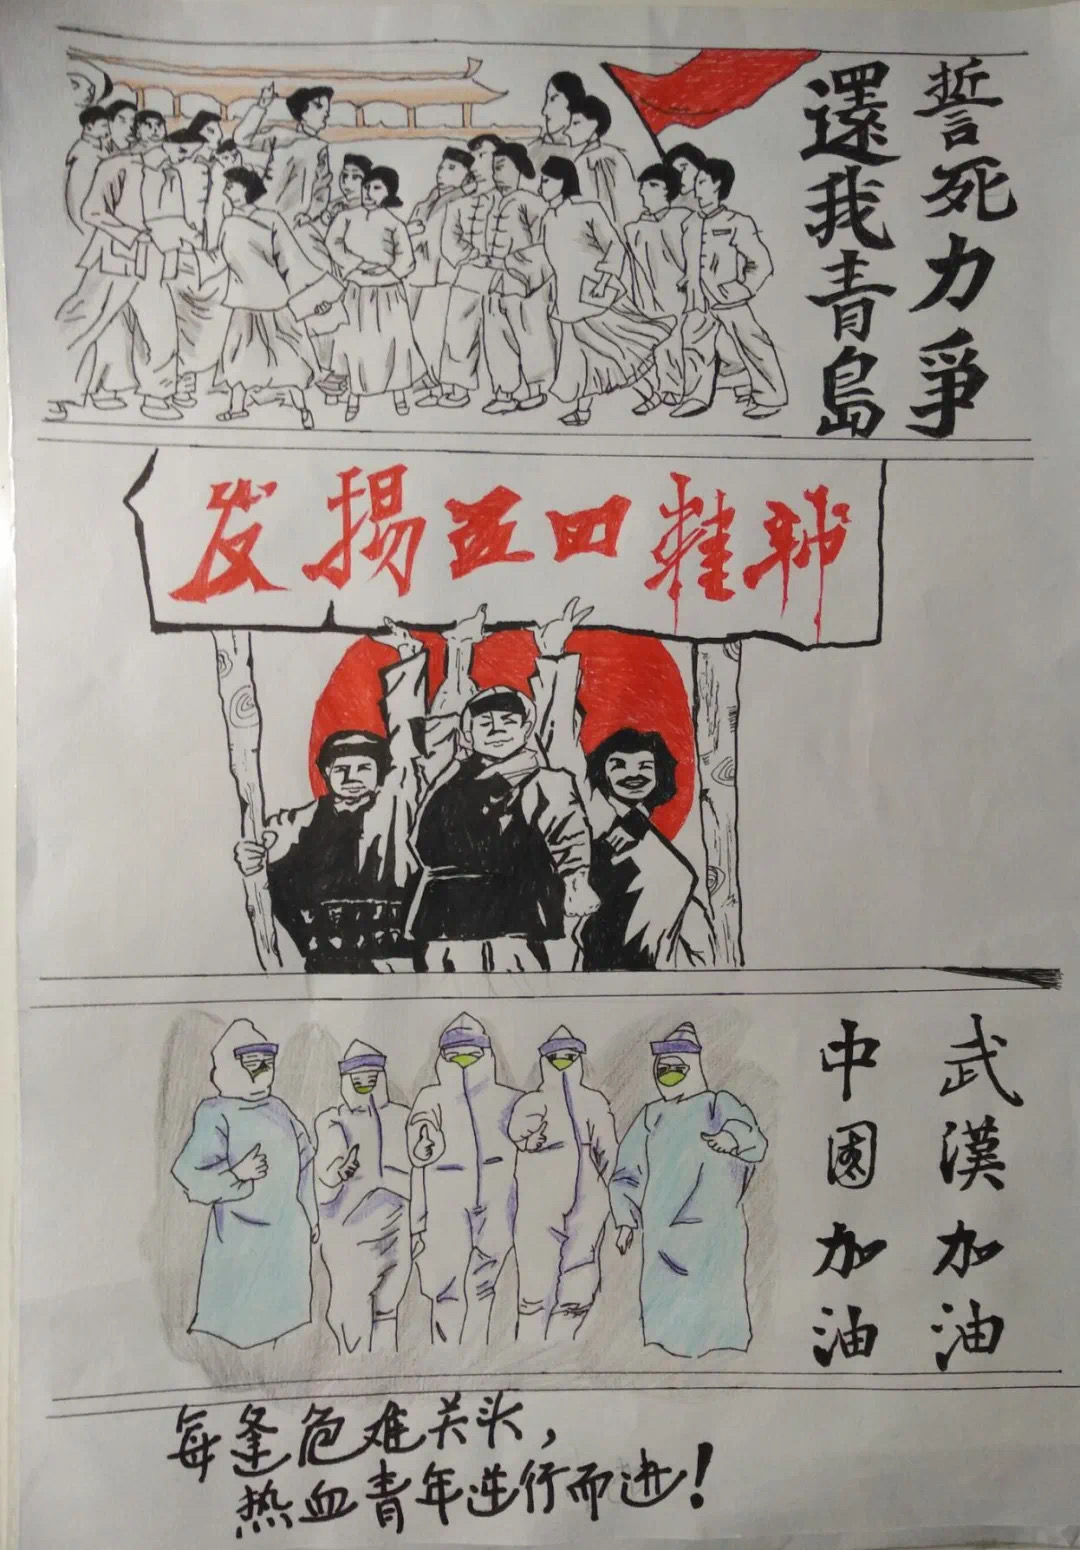 誓死力爭
還我青島
发揚五四精神
武漢加油
中国加油
每逢危难关头，
热血青年逆行而进！